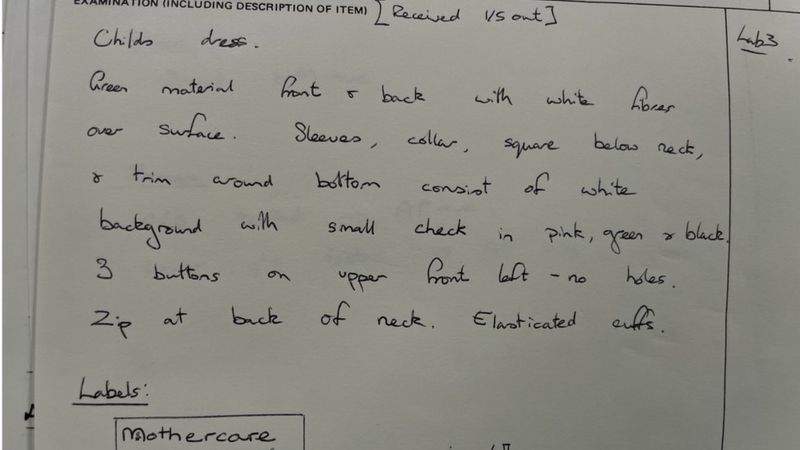 EXAMINATION (INCLUDING DESCRIPTION OF ITEM) [Received I/S out]
Lab 3
Childs dress.
Green material front & back with white fibres
over surface. Sleeves, collar, square below neck,
& trim around bottom consist of white
background with small check in pink, green & black.
3 buttons on upper front left - no holes.
Zip at back of neck. Elasticated cuffs.
Labels:
Mothercare